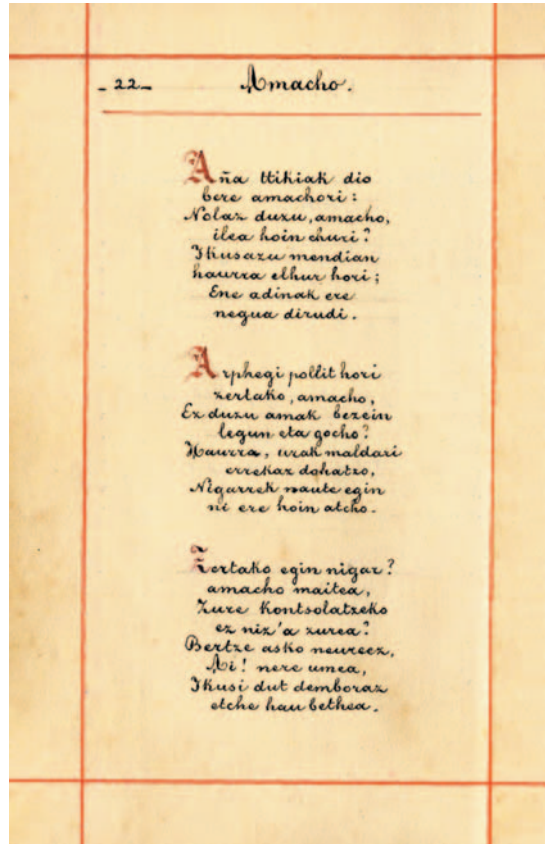 - 22 -
Amacho.
Aña ttikiak dio
bere amachori:
Nolaz duzu, amacho,
ilea hoin churi?
Ikusazu mendian
haurra elhur hori;
Ene adinak ere
negua dirudi.
Arphegi pollit hori
zertako, amacho,
Ez duzu amak bezein
legun eta gocho?
Haurra, urak maldari
errekaz dohatzo,
Nigarrek naute egin
ni ere hoin atcho.
Zertako egin nigar?
amacho maitea,
Zure kontsolatzeko
ez niz'a zurea?
Bertze asko neurecz,
Ai! nere umea,
Ikusi dut demboraz
etche hau bethea.